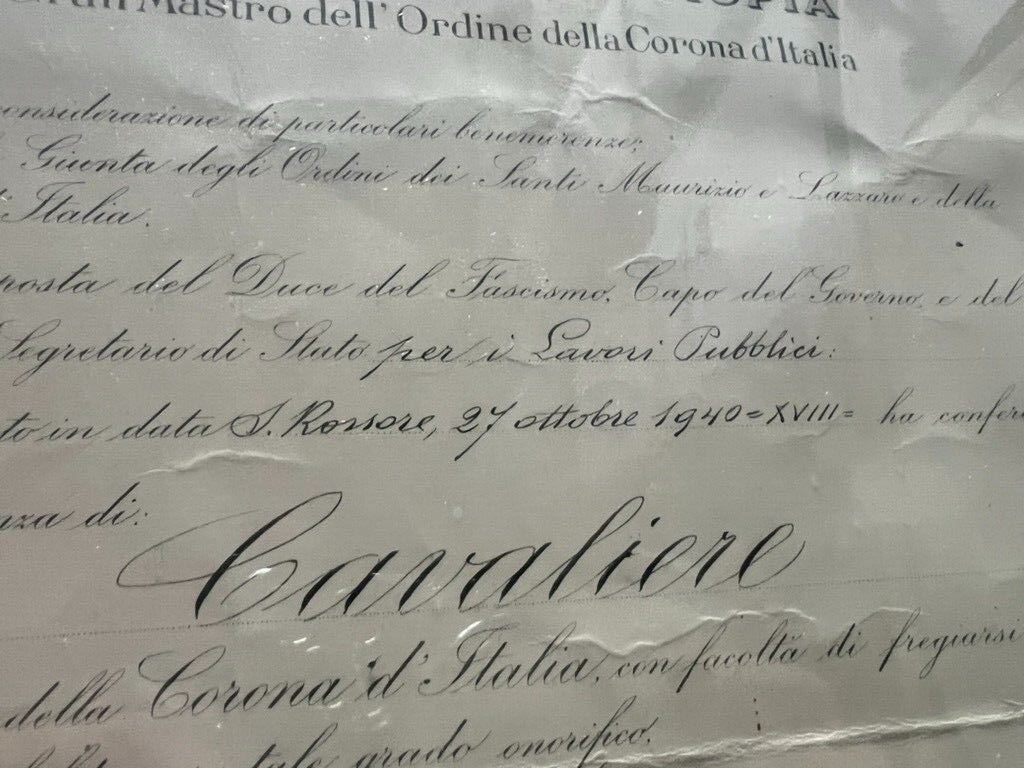 Gran Mastro dell' Ordine della Corona d'Italia
considerazione di particolari benemerenze;
Giunta degli Ordini dei Santi Maurizio e Lazzaro e della
Italia.
posta del Duce del Fascismo, Capo del Governo, e del
Segretario di Stato per i Lavori Pubblici:
to in data S. Rossore, 27 ottobre 1940=XVIII= ha confer
nza di:
Cavaliere
della Corona d'Italia, con facoltà di fregiarsi
tale grado onorifico.